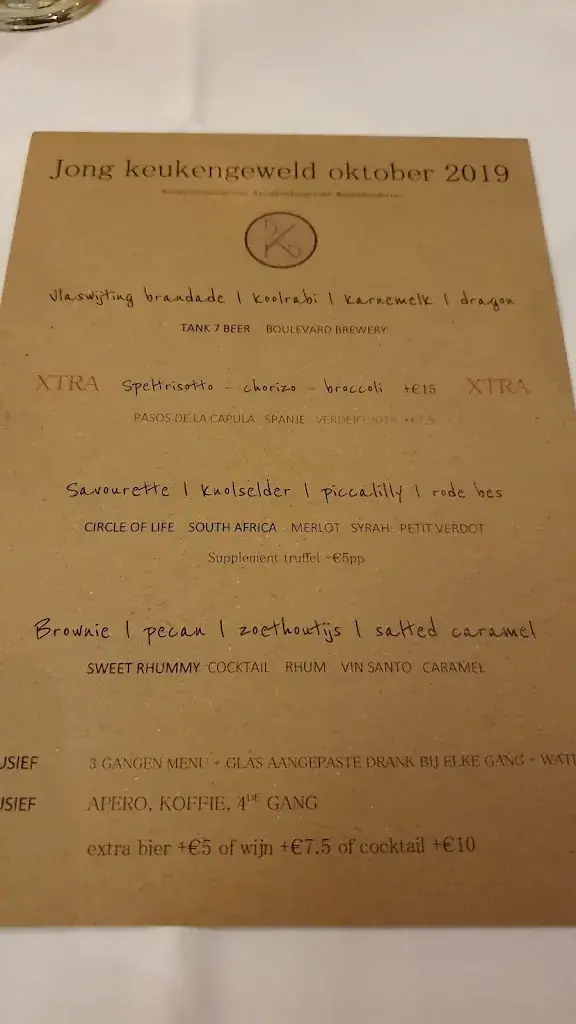 Jong keukengeweld oktober 2019
Vlaswijting brandade | koolrabi | karnemelk | dragon
TANK 7 BEER BOULEVARD BREWERY
XTRA Speltrisotto - chorizo - broccoli +€15 XTRA
PASOS DE LA CAPULA SPANJE VERDEJO 2018 +€7.5
Savourette | knolselder | piccalilly | rode bes
CIRCLE OF LIFE SOUTH AFRICA MERLOT SYRAH PETIT VERDOT
Supplement truffel +€5pp
Brownie | pecan | zoethoutijs | salted caramel
SWEET RHUMMY COCKTAIL RHUM VIN SANTO CARAMEL
USIEF 3 GANGEN MENU + GLAS AANGEPASTE DRANK BIJ ELKE GANG + WAT
USIEF APERO, KOFFIE, 4DE GANG
extra bier +€5 of wijn +€7.5 of cocktail +€10